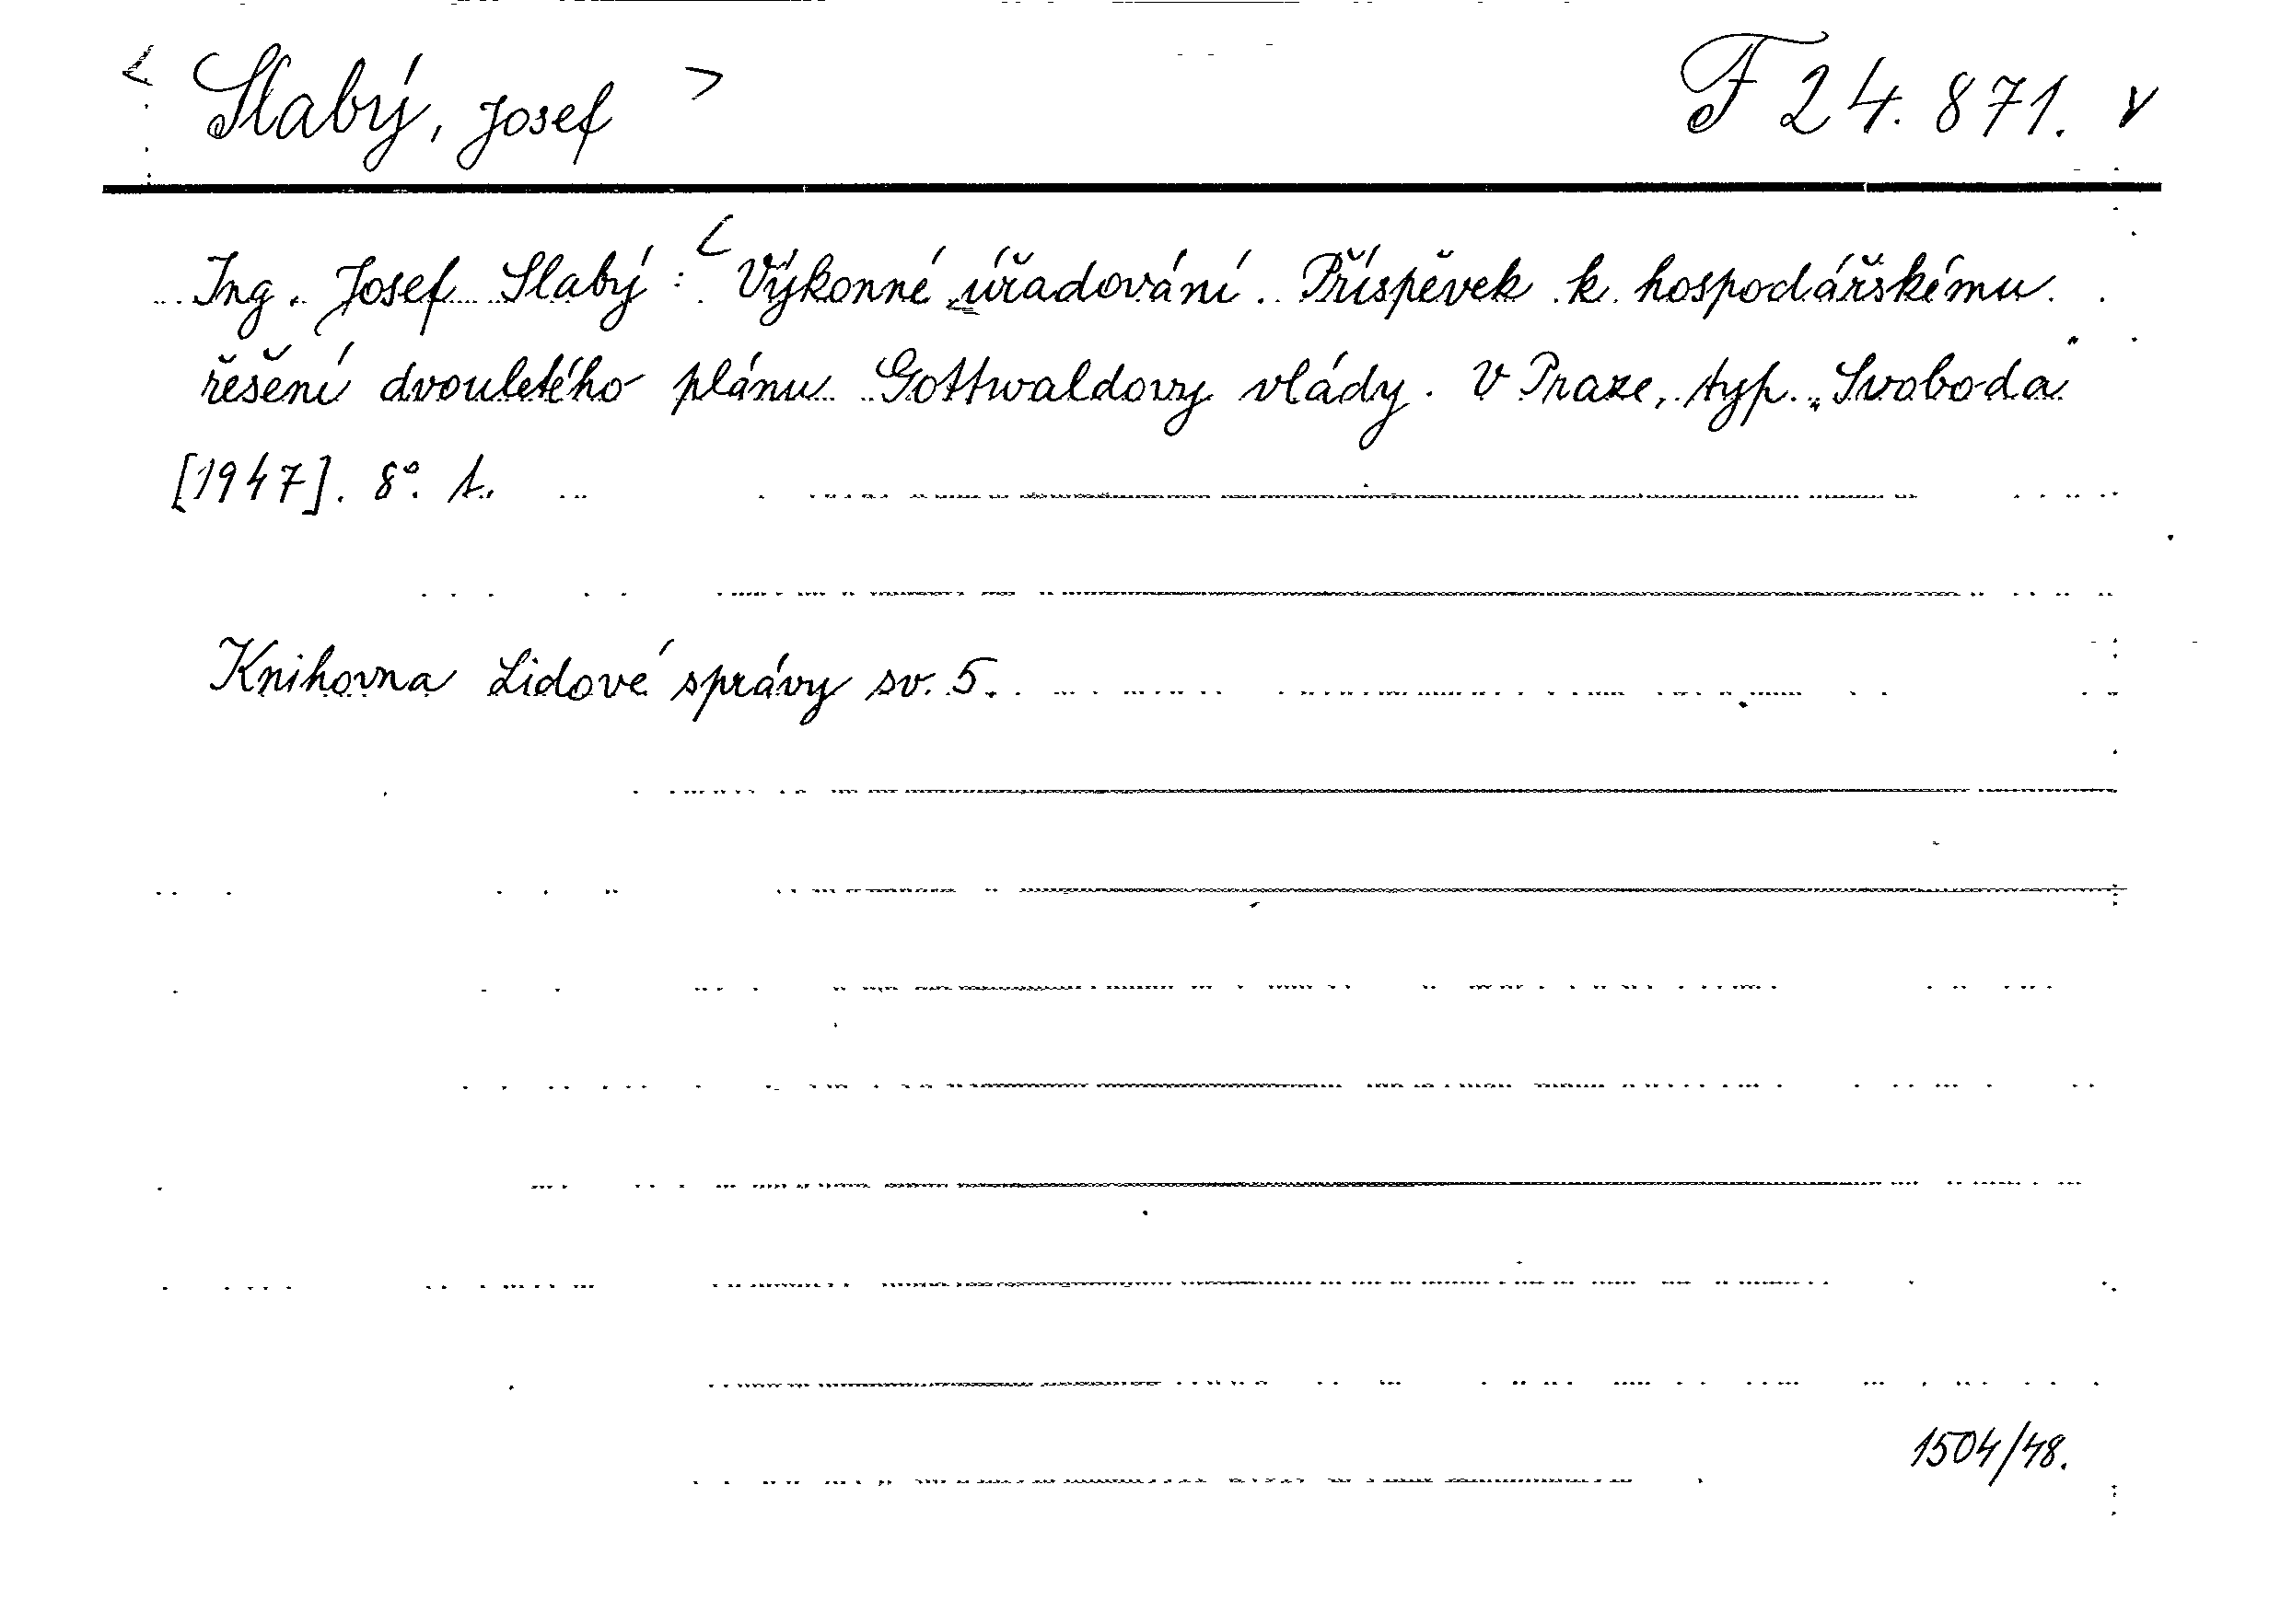 < Slabý, Josef > F 24.871. v
Ing. Josef Slabý: < Výkonné úřadování. Příspěvek k hospodářskému
řešení dvouletého plánu Gottwaldovy vlády. V Praze, typ. „Svoboda“
[1947]. 8°. t.
Knihovna Lidové správy sv. 5.
1504/48.